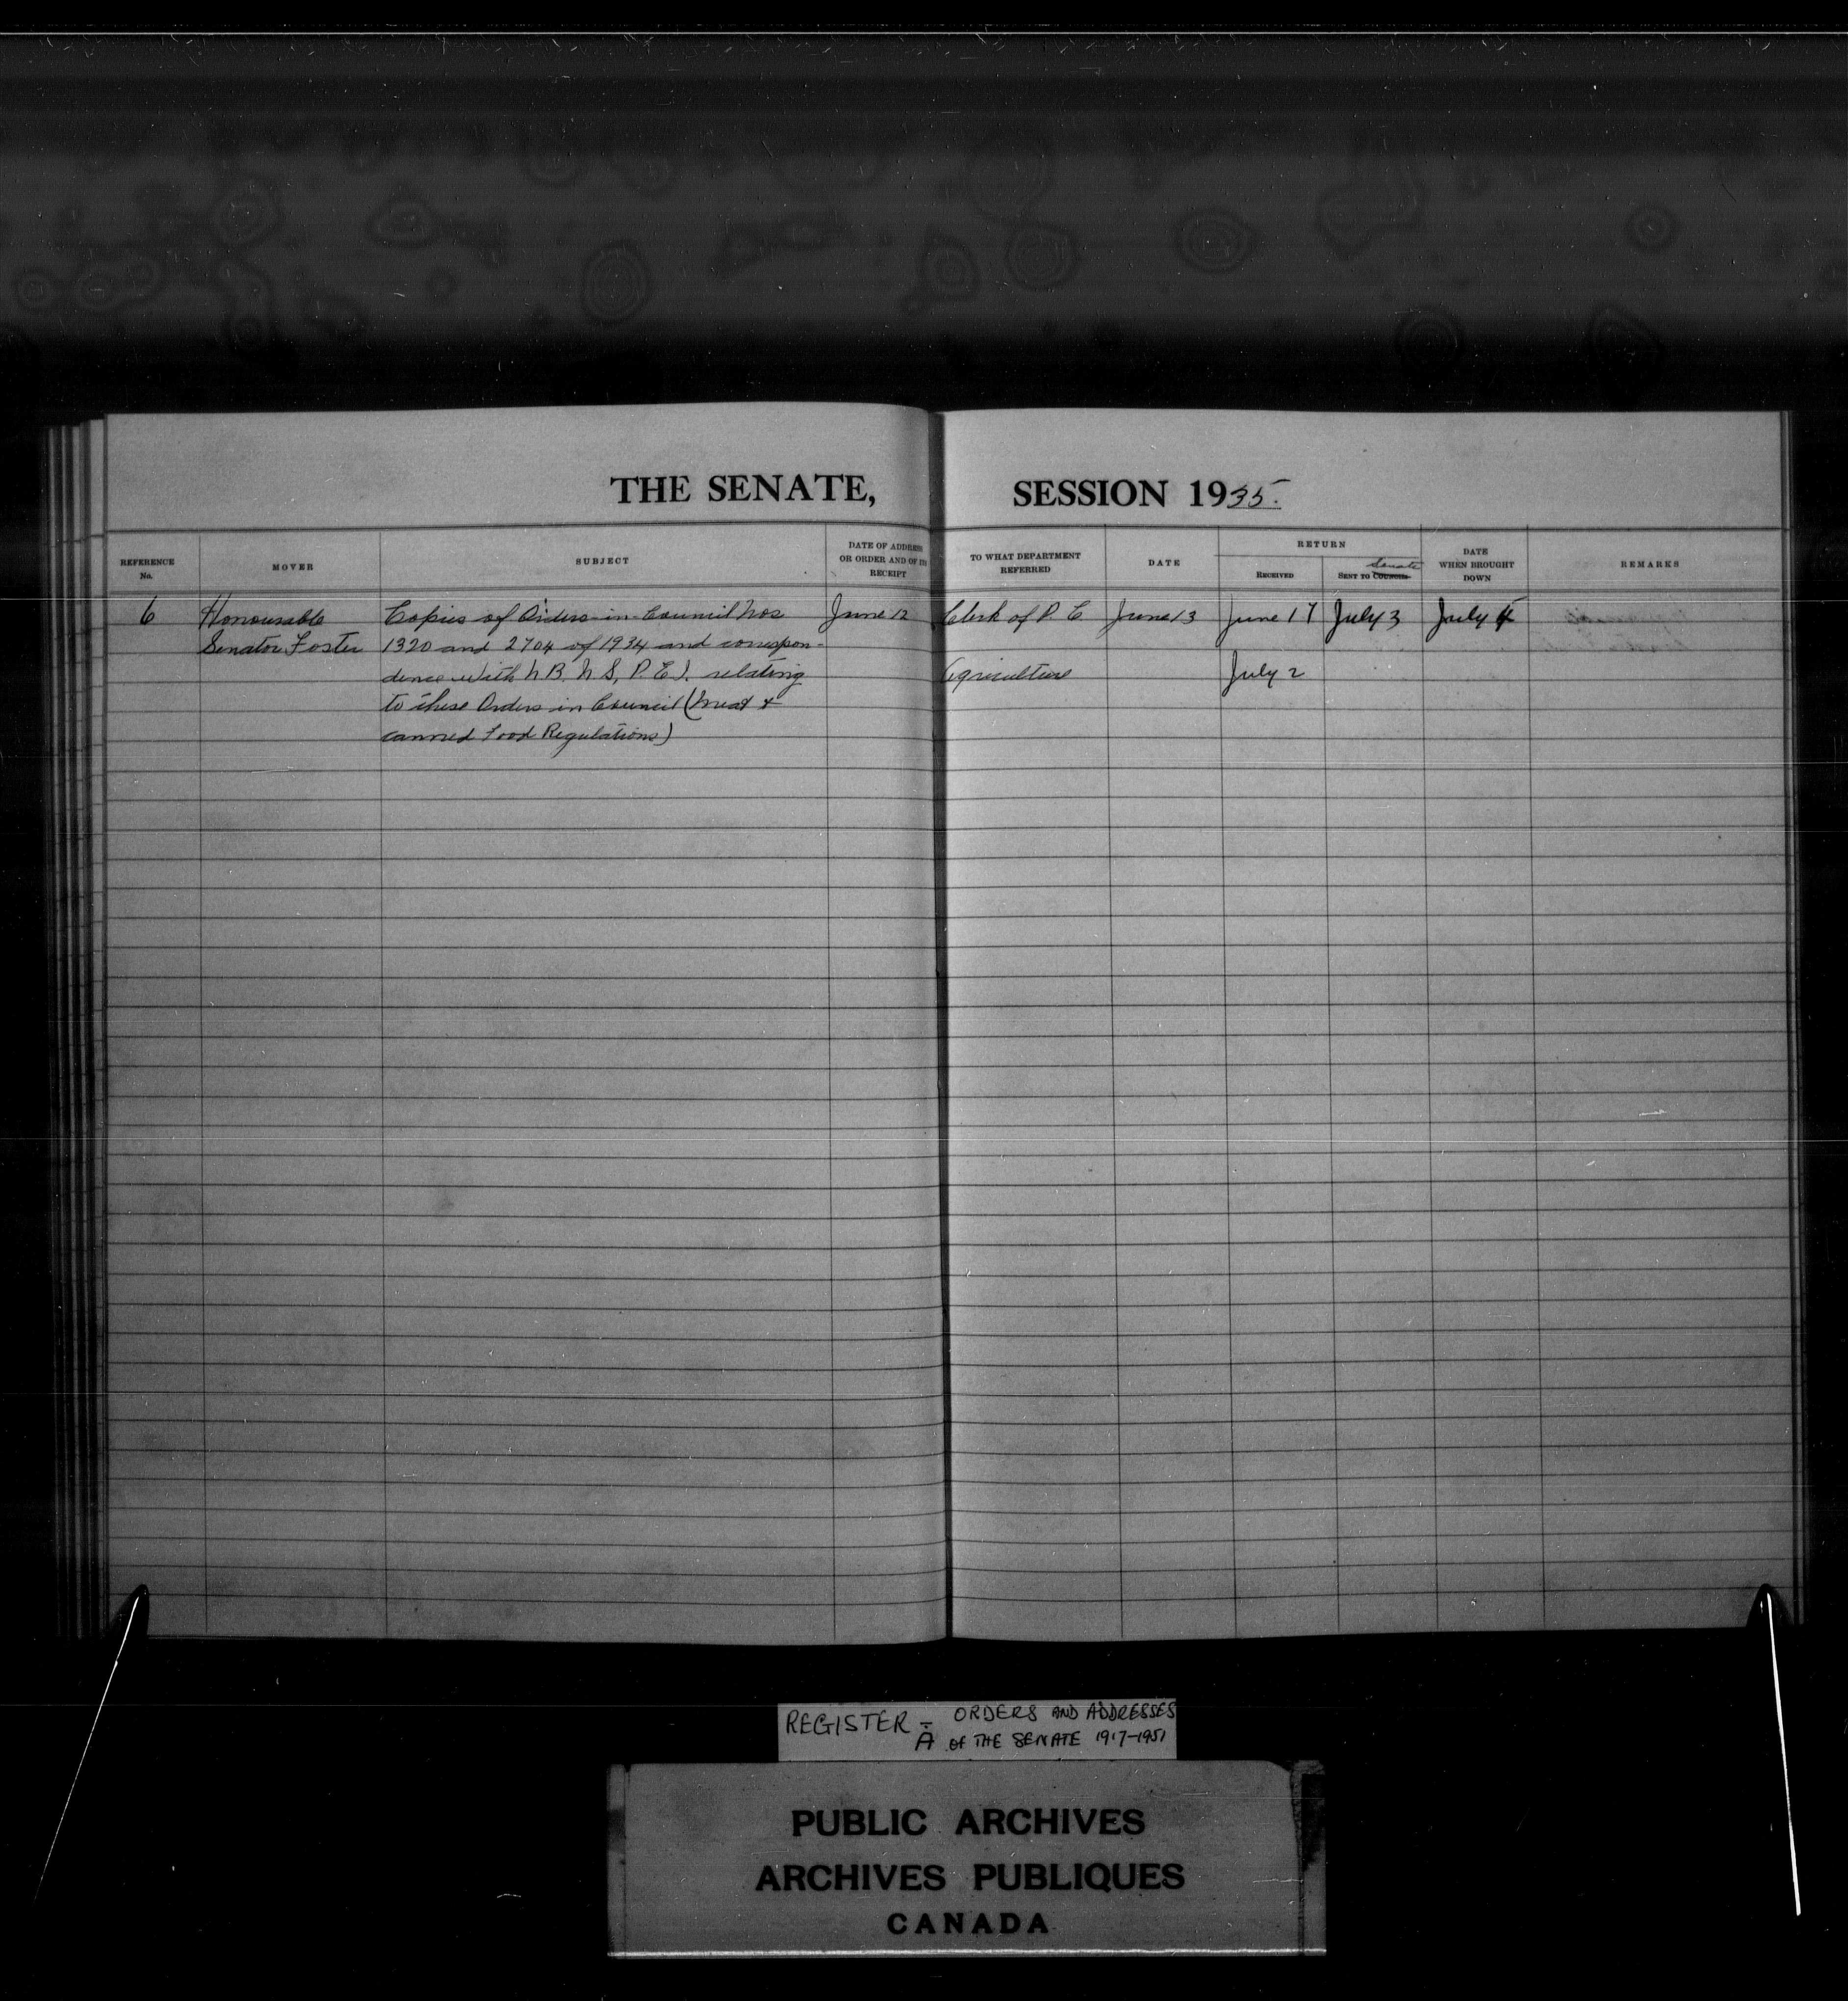 THE SENATE, SESSION 1935.
REFERENCE No.
MOVER
SUBJECT
DATE OF ADDRESS OR ORDER AND OF ITS RECEIPT
TO WHAT DEPARTMENT REFERRED
DATE
RETURN
RECEIVED
SENT TO COUNCIL Senate
DATE WHEN BROUGHT DOWN
REMARKS
6 Honourable Copies of Orders-in-Council Nos June 12 Clerk of P. C June 13 June 17 July 3 July 4
Senator Foster 1320 and 2704 of 1934 and correspon-
dence with N B. N S, P. E I. relating Agriculture July 2
to these Orders in Council (Meat &
canned Food Regulations)
REGISTER - ORDERS AND ADDRESSES
A OF THE SENATE 1917-1951
PUBLIC ARCHIVES
ARCHIVES PUBLIQUES
CANADA